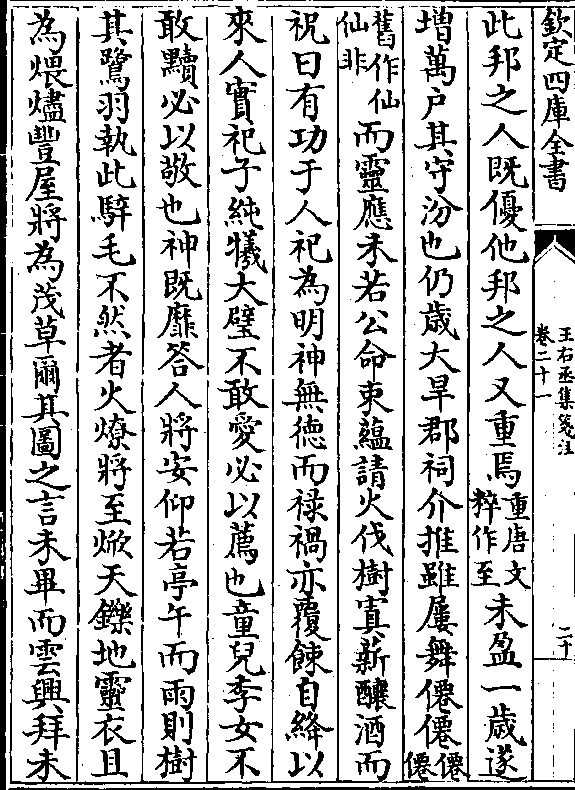 欽定四庫全書
王右丞集箋注
卷二十一
二十
此邦之人既優他邦之人又重焉重唐文粹作至未盈一歲遂
增萬戶其守汾也仍歲大旱郡祠介推雖屢舞僊僊僊僊
舊作仙仙非而靈應未若公命束蘊請火伐樹寘薪釀酒而
祝曰有功于人祀為明神無徳而禄禍亦覆餗自絳以
來人實祀子純犧大璧不敢愛必以薦也童兒季女不
敢黷必以敬也神既靡答人將安仰若亭午而雨則樹
其鷺羽執此騂毛不然者火燎將至焮天鑠地靈衣且
為煨燼豐屋將為茂草爾其圖之言未畢而雲興拜未